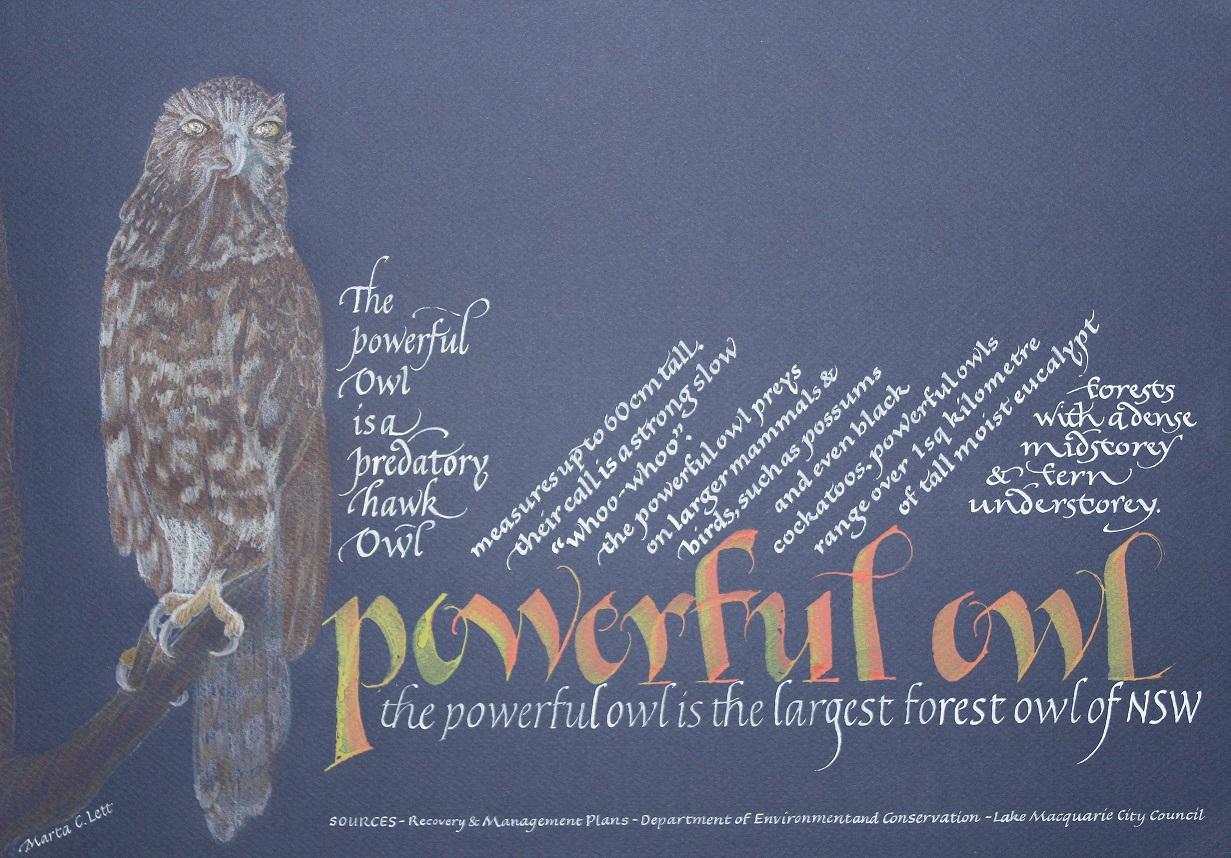 The
powerful
Owl
is a
predatory
hawk
Owl
measures up to 60cm tall.
their call is a strong slow
"whoo-whoo".
the powerful owl preys
on larger mammals &
birds, such as possums
and even black
cockatoos. powerful owls
range over 1sq kilometre
of tall moist eucalypt
forests
with a dense
midstorey
& fern
understorey.
powerful owl
the powerful owl is the largest forest owl of NSW
SOURCES - Recovery & Management Plans - Department of Environment and Conservation - Lake Macquarie City Council
Marta C. Lett